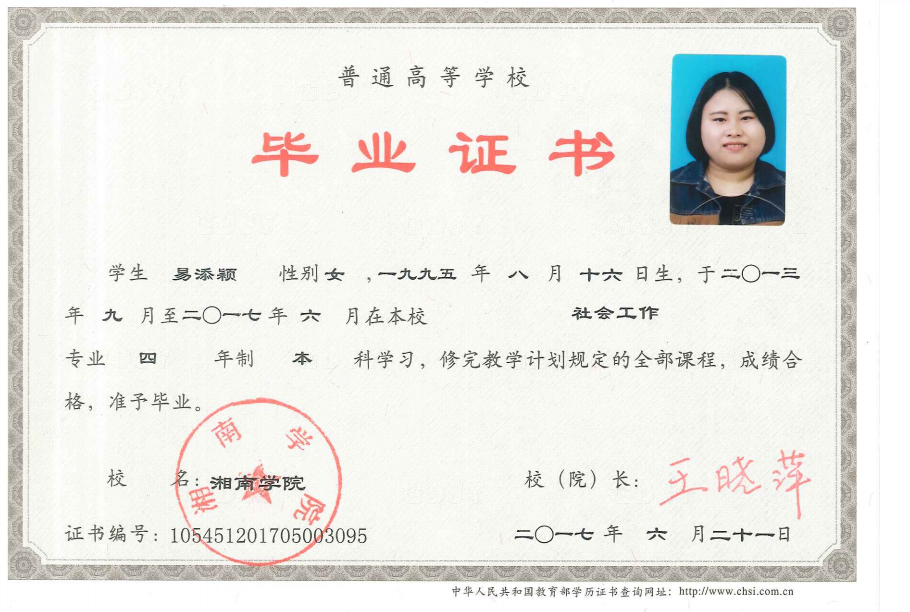 普通高等学校
毕业证书
学生 易添颖 性别 女 ,一九九五 年 八 月 十六 日生，于 二〇一三
年 九 月至 二〇一七 年 六 月在本校 社会工作
专业 四 年制 本 科学习，修完教学计划规定的全部课程，成绩合
格，准予毕业。
湘南学院
校 名：湘南学院 校（院）长：王晓萍
证书编号：105451201705003095 二〇一七 年 六 月二十一日
中华人民共和国教育部学历证书查询网址：http://www.chsi.com.cn